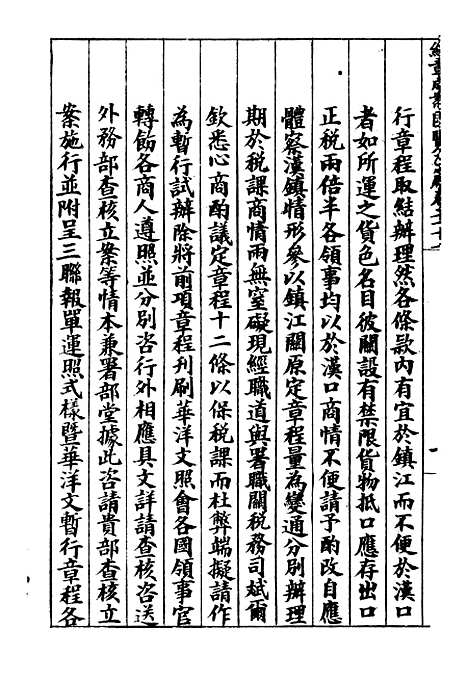 行章程取結辦理然各條款內有宜於鎮江而不便於漢口
者如所運之貨色名目彼關設有禁限貨物抵口應存出口
正稅兩倍半各領事均以於漢口商情不便請予酌改自應
體察漢鎮情形參以鎮江關原定章程量為變通分別辦理
期於稅課商情兩無窒礙現經職道與署職關稅務司斌爾
欽悉心商酌議定章程十二條以保稅課而杜弊端擬請作
為暫行試辦除將前項章程刊刷華洋文照會各國領事官
轉飭各商人遵照並分別咨行外相應具文詳請查核咨送
外務部查核立案等情本兼署部堂據此咨請貴部查核立
案施行並附呈三聯報單運照式樣暨華洋文暫行章程各